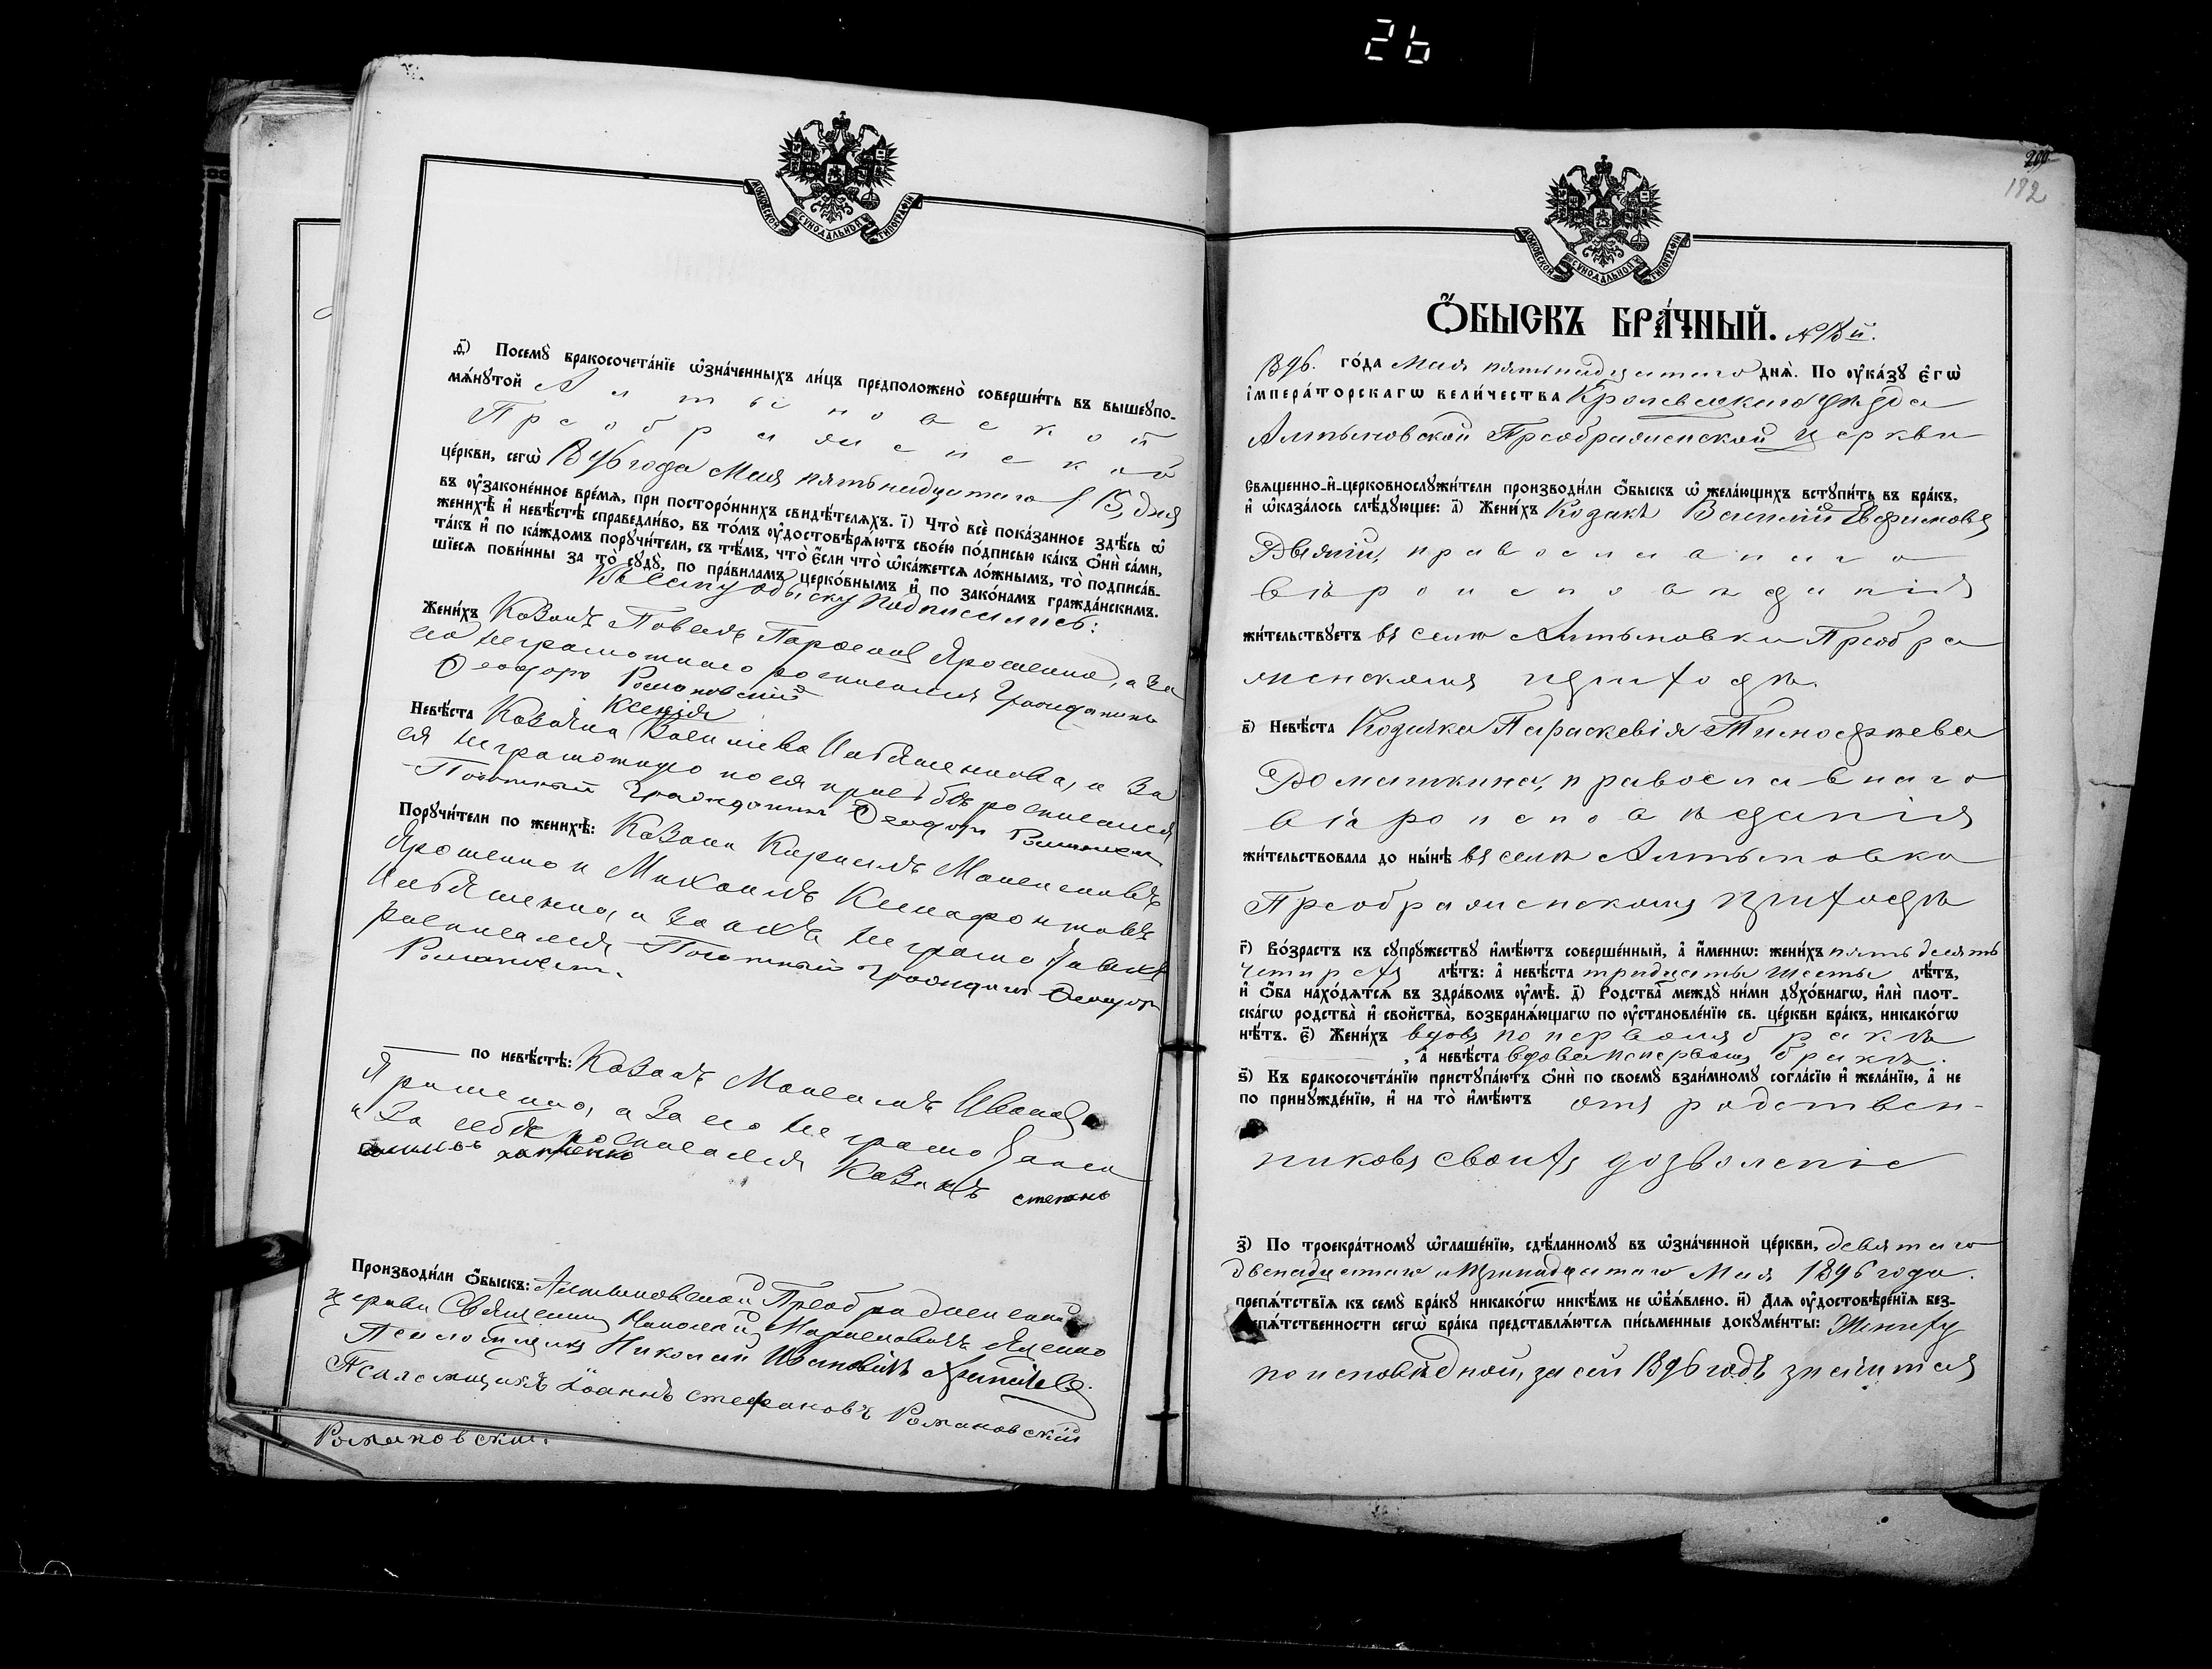 26
МОСКОВСКОЙ СѴНОДАЛЬНОЙ ТИПОГРАФІИ
д҃) Посемꙋ бракосочета́нїе ѡ҆зна́ченныхъ ли́цъ предположено̀ соверши́ть въ вышеꙋпо-
мѧ́нꙋтой Алтыновской
Преображенской
це́ркви, сегѡ̀ 1896 года Мая пятьнадцатаго /15, дня
въ ᲂу҆зако́ненное вре́мѧ, при посторо́ннихъ свидѣ́телѧхъ. і҃) Что̀ всѐ пока́занное здѣ́сь ѡ҆
женихѣ̀ и҆ невѣ́стѣ справедли́во, въ то́мъ ᲂу҆достовѣрѧ́ютъ своє́ю по́дписью ка́къ ѻ҆нѝ са́ми,
та́къ и҆ по ка́ждомъ порꙋчи́тели, съ тѣ́мъ, что̀ є҆́сли что̀ ѡ҆ка́жетсѧ ло́жнымъ, то̀ подписа́в-
шїесѧ пови́нны за то̀ сꙋдꙋ̀, по пра́виламъ церко́внымъ и҆ по зако́намъ гражда́нскимъ.
Къ сему обыску подписались:
Жени́хъ Козакъ Павелъ Ярошенко, а за
его неграмотнаго росписался Гражданинъ
Ѳеодоръ Романовскій
Ксенія
Невѣ́ста Козачка Василіева Ильяшенкова, а за
ея неграмотную по ея просьбѣ росписался
Почотный Гражданинъ Ѳеодоръ
Порꙋчи́тели по женихѣ̀: Козаки Карпъ
Ярошенко и Михаилъ Ксенофонтовъ
Ильяшенко, а за ихъ неграмотныхъ
росписался Почотный Гражданинъ Ѳеодоръ
по невѣ́стѣ: Козакъ Иванов
Ярошенко, а за его неграмотнаго
и за себе росписался Козакъ степанъ
Производи́ли ѻ҆́быскъ: Алтыновской Преображенской
церкви Священникъ Николай Яценко
Псаломщикъ Николай Ивановичъ
Псаломщикъ Іоаннъ стефановъ Романовскій
Романовскій.
200
182
МОСКОВСКОЙ СѴНОДАЛЬНОЙ ТИПОГРАФІИ
Ѻ҆́БЫСКЪ БРА́ЧНЫЙ. №18й.
1896. го́да Мая пятьнадцатаго днѧ̀. По ᲂу҆ка́зꙋ є҆гѡ̀
і҆мпера́торскагѡ вели́чества Кролевецкаго уѣзда
Алтыновской Преображенской церкви
Свѧщенно-и҆-церковнослꙋжи́тели производи́ли ѻ҆́быскъ ѡ҆ жела́ющихъ встꙋпи́ть въ бра́къ,
и҆ ѡ҆каза́лось слѣ́дꙋющее: а҃) Жени́хъ Козакъ Василій Евфимовъ
православнаго
вѣроисповѣданія
жи́тельствꙋетъ въ селѣ Алтыновкѣ Преобра
женскомъ приходѣ.
в҃) Невѣ́ста Козачка Параскевія Тимофѣева
Домашкина, православнаго
вѣроисповѣданія
жи́тельствовала до ны́нѣ въ селѣ Алтыновкѣ
Преображенскомъ приходѣ
г҃) Во́зрастъ къ сꙋпрꙋ́жествꙋ и҆мѣ́ютъ соверше́нный, а҆ и҆́меннѡ: жени́хъ пятьдесять
четырехъ лѣ́тъ: а҆ невѣ́ста тридцать шесть лѣ́тъ,
и҆ ѻ҆́ба нахо́дѧтсѧ въ здра́вомъ ᲂу҆мѣ̀. д҃) Родства̀ междꙋ̀ ни́ми дꙋхо́внагѡ, и҆лѝ плот-
ска́гѡ родства̀ и҆ свойства̀, возбранѧ́ющагѡ по ᲂу҆становле́нїю св. це́ркви бра́къ, никако́гѡ
нѣ́тъ. є҃) Жени́хъ вдовъ по первомъ бракѣ
, а҆ невѣ́ста вдова по первомъ бракѣ.
ѕ҃) Къ бракосочета́нїю пристꙋпа́ютъ ѻ҆нѝ по своемꙋ̀ взаи́мномꙋ согла́сїю и҆ жела́нїю, а҆ не
по принꙋжде́нїю, и҆ на то̀ и҆мѣ́ютъ отъ родствен-
никовъ своихъ дозволеніе
з҃) По троекра́тномꙋ ѡ҆глаше́нїю, сдѣ́ланномꙋ въ ѡ҆зна́ченной це́ркви, девятаго
двенадцатаго и Мая 1896 года.
препѧ́тствїѧ къ семꙋ̀ бра́кꙋ никако́гѡ никѣ́мъ не ѡ҆б̾ѧ́влено. и҃) Для ᲂу҆достовѣре́нїѧ без-
препѧ́тственности сегѡ̀ бра́ка представлѧ́ютсѧ пи́сьменные докꙋме́нты: Жениху
по исповѣдной, за сей 1896 годъ значится